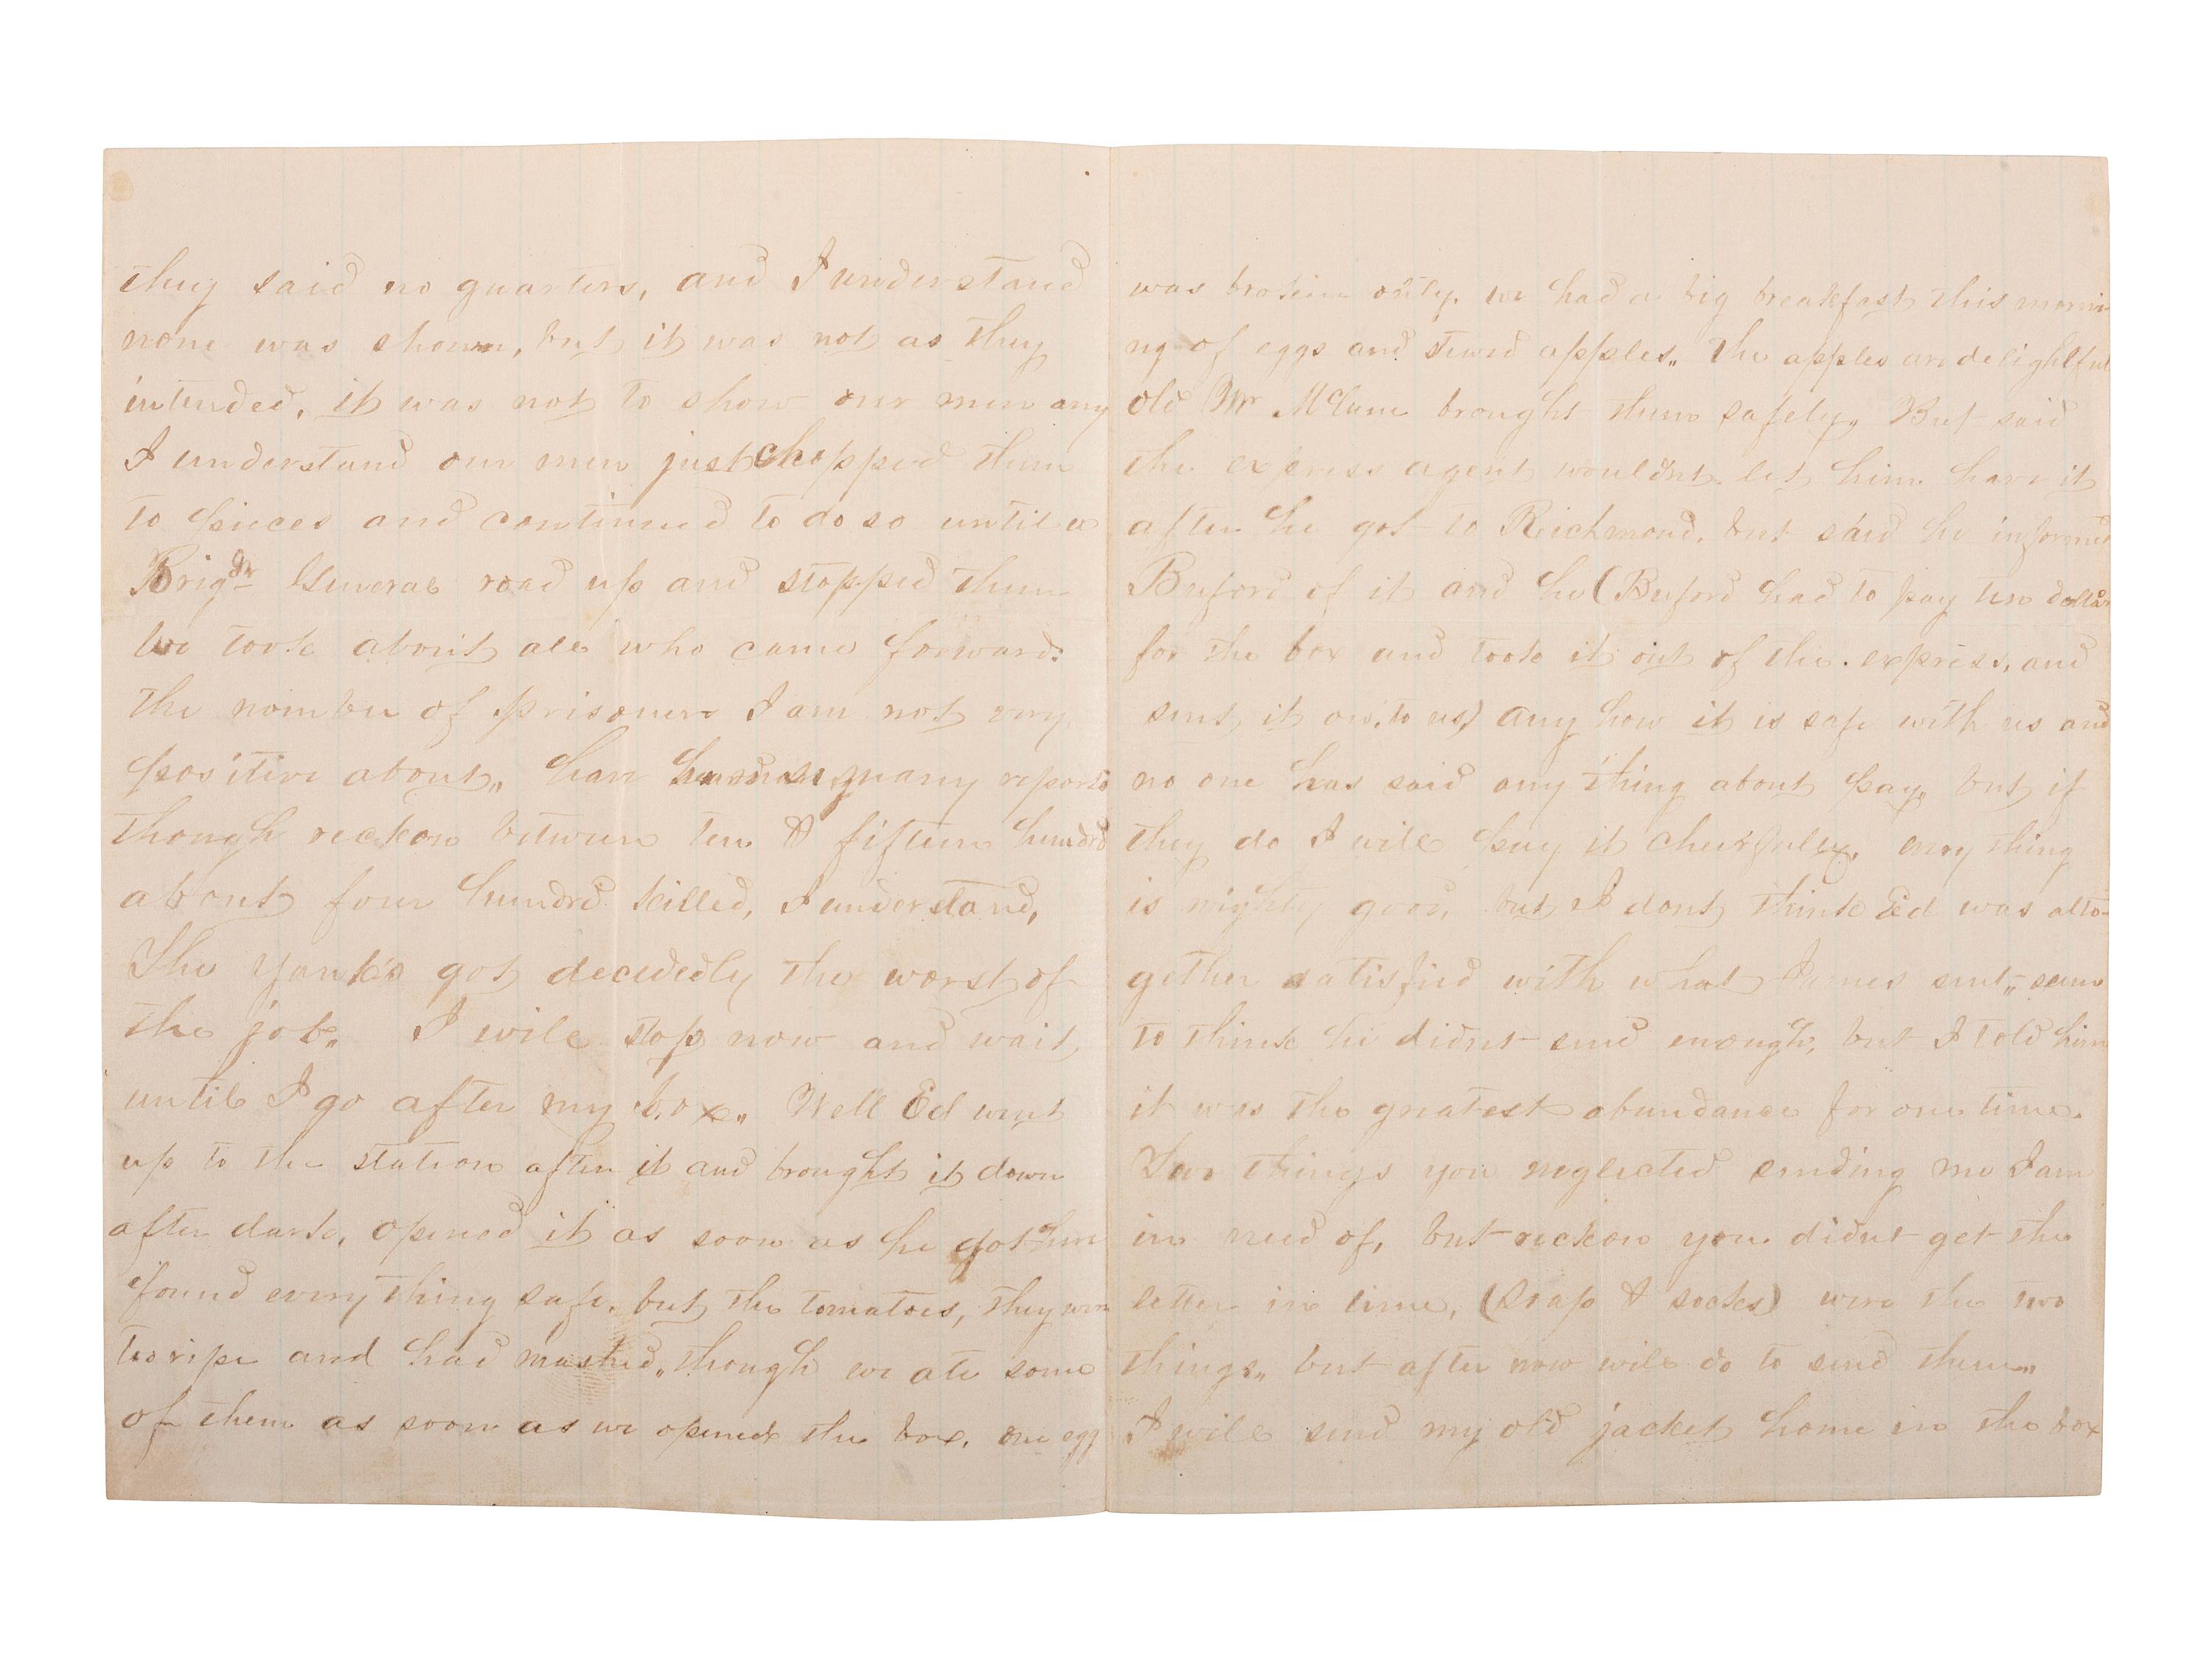 they said no quarters, and I understand
none was shown, but it was not as they
intended, it was not to show our men any
I understand our men just chopped them
to pieces and continued to do so until a
Brigdr General road up and stopped them
we took about all who came forward.
the nomber of prisoners I am not very
positive about,, have heard so many reports
though reckon between ten & fifteen hundrd
about four hundrd killed, I understand,
The Yank's got decidedly the worst of
the job,, I will stop now and wait
until I go after my box,, Well Ed went
up to the station after it and brought it down
after dark, opened it as soon as he got here
found every thing safe, but the tomatoes, they were
too ripe and had mashed,, though we ate some
of them as soon as we opened the box, one egg
was broken only. we had a big breakfast this morni
ng of eggs and stewed apples,, The apples are delightful
old Mr McCune brought them safely, But said
the express agent wouldnt let him have it
after he got to Richmond, but said he informed
Buford of it and he (Buford had to pay ten dollars
for the box and took it out of the express, and
sent it on to us) any how it is safe with us and
no one has said any thing about pay, but if
they do I will pay it cheerfuley, every thing
is mighty good, but I dont think Ed was alto-
gether satisfied with what James sent,, seems
to think he didnt send enough, but I told him
it was the greatest abundance for one time.
Two things you neglected sending me I am
in need of, but reckon you didnt get the
letter in time, (Soap & socks) were the two
things,, but after now will do to send them,,
I will send my old jacket home in the box